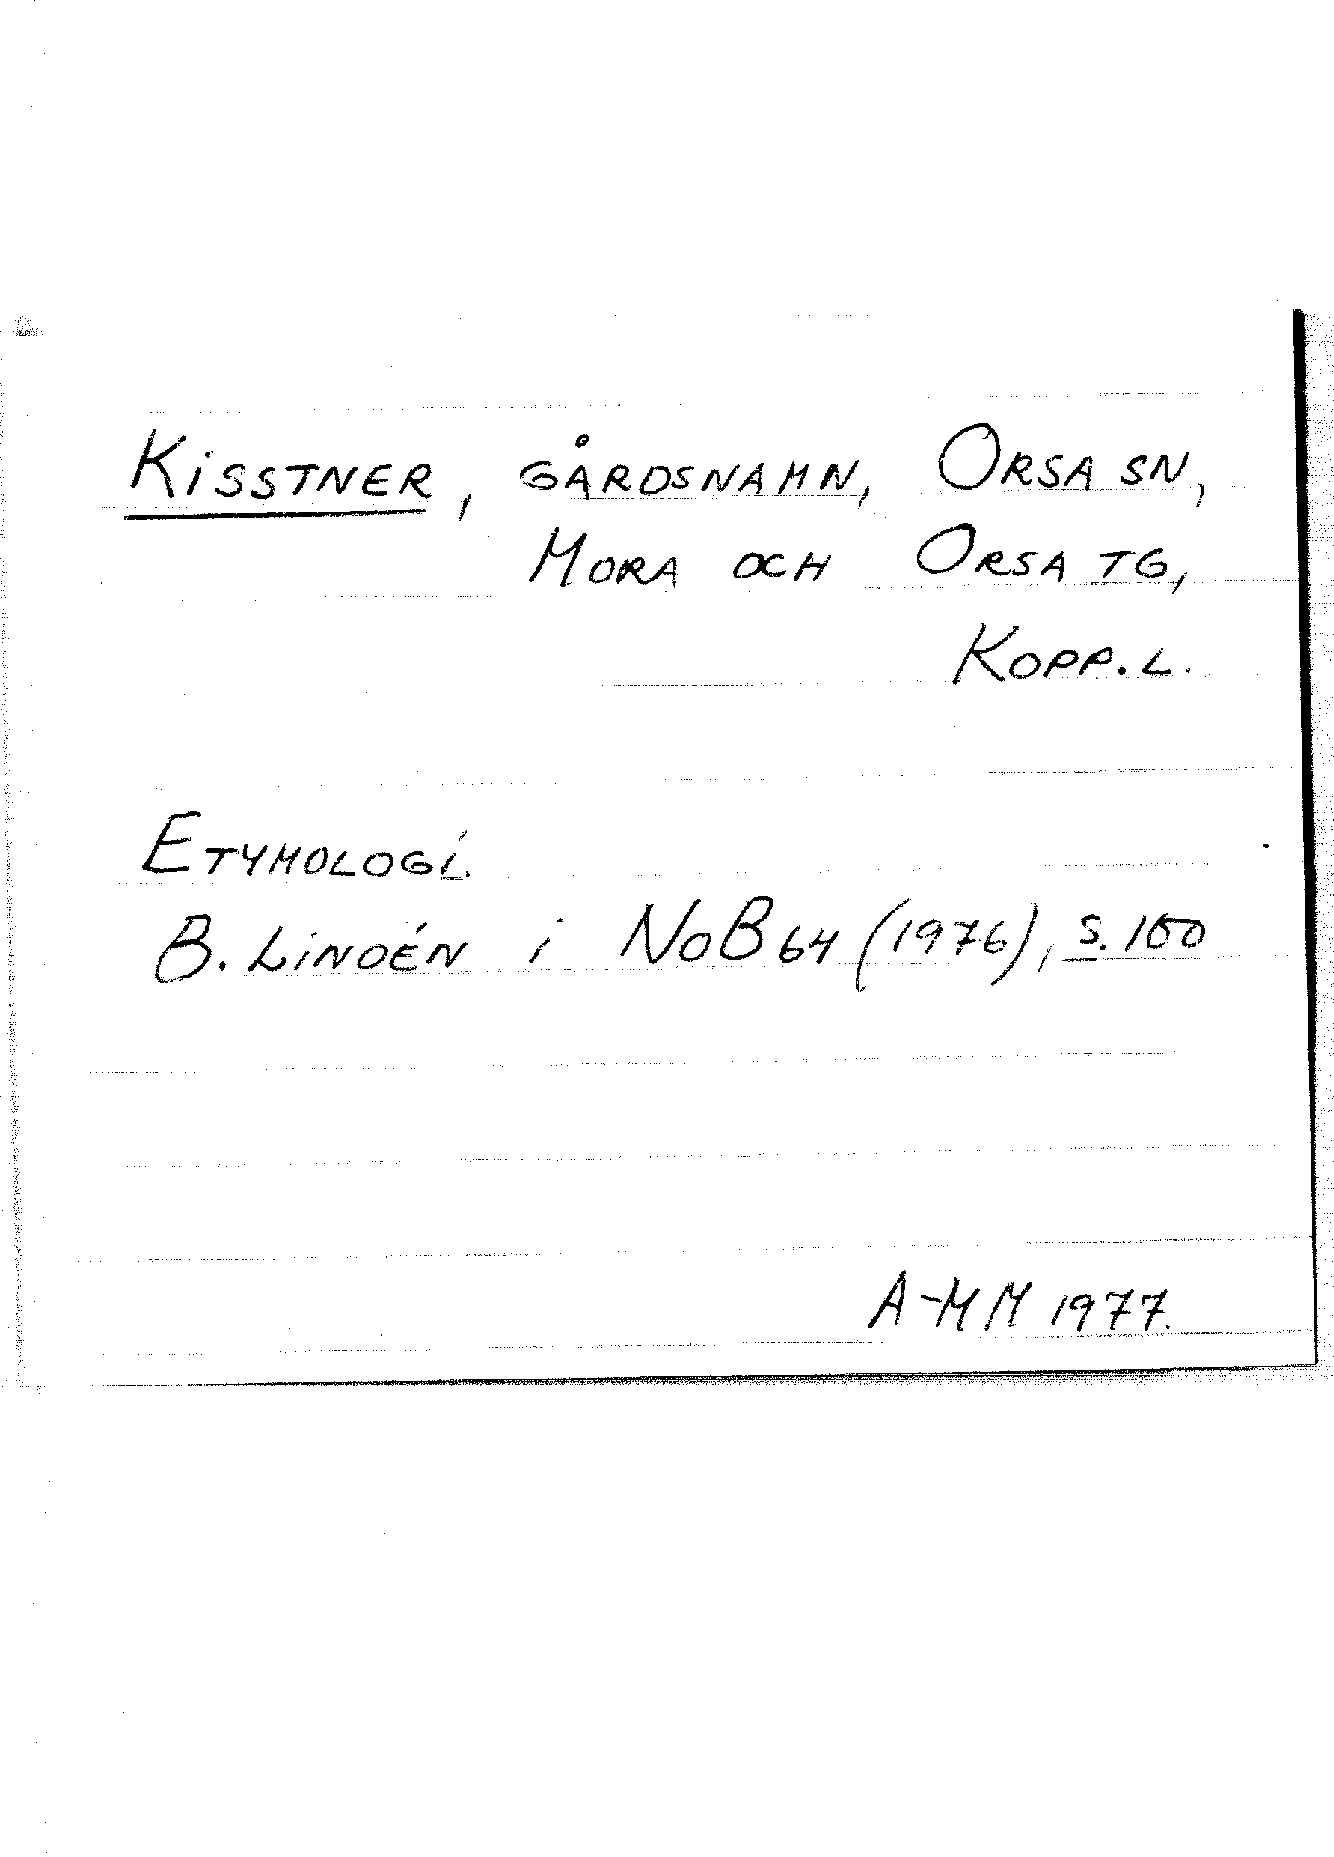 KISSTNER, GÅRDSNAMN, ORSA SN,
MORA OCH ORSA TG,
KOPP. L.
ETYMOLOGI.
B. LINDÉN i NoB 64 (1976), S. 100
A-MM 1977.